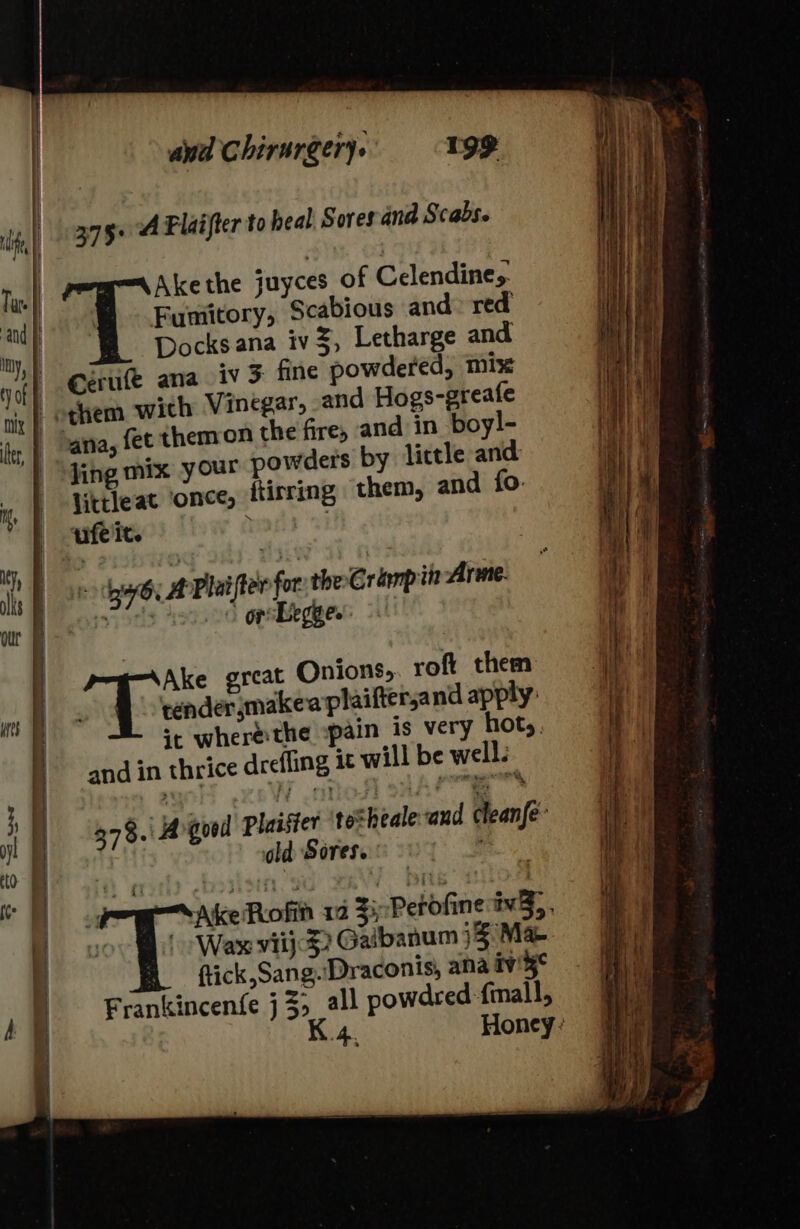 and Chirurgery. 199
375. A Plaiſter to heal Sores and Scabs.
TAke the juyces of Celendine,
Fumitory, Scabious and red
Docks ana iv ℥, Letharge and
Ceruſe ana iv ℥ fine powdered, mix
them with Vinegar, and Hogs-greaſe
ana, ſet them on the fire, and in boyl-
ling mix your powders by little and
little at once, ſtirring them, and ſo
uſe it.
376. A Plaiſter for the Crampin Arme
or Legge.
TAke great Onions, roſt them
tender, make a plaiſter, and apply
it where the pain is very hot,
and in thrice dreſſing it will be well.
378. A good Plaiſter to heale and cleanſe
old Sores.
TAke Roſin 12 ℥, Peroſine iv ℥,
Wax viij ℥, Galbanum j ℥ Ma-
ſtick, Sang. Draconis, ana iv ℥
Frankincenſe j ℥, all powdred ſmall,
K 4. Honey